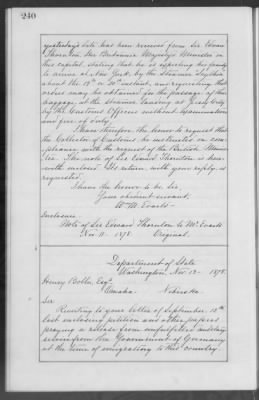 240
yesterday's date has been received from Sir Edward
Thornton Her Britannic Majesty's Minister in
this capital, stating that he is expecting his family
to arrive at New York by the steamer Scythia
about the 19th or 20th instant, and requesting that
orders may be obtained for the passage of their
baggage, at the steamer landing at Jersey City
by the Customs Officers without examination
and free of duty.
I have therefore the honor to request that
the Collector of Customs, be instructed on com-
pliance with the request of the British Minis-
ter. The note of Sir Edward Thornton is here-
with enclosed. Its return with your reply is
requested.
I have the honor to be Sir,
Your obedient servant,
Wm. M. Evarts
Enclosure
Note of Sir Edward Thornton to Mr. Evarts
Nov. 11. 1878. Original.
Department of State
Washington, Nov. 12 1878.
Henry Bolln, Esq.
Omaha. Nebraska
Sir
Recurring to your letter of September 18th
last enclosing petition and other papers
praying a release from unfulfilled military
service from the Government of Germany
at the time of emigration to this country.